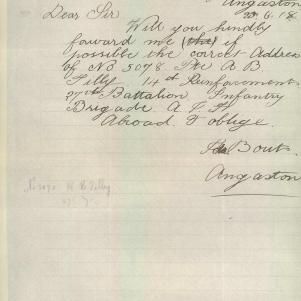 Angaston
20.6.18
Dear Sir
Will you kindly
foward me (the) if
possible the corect Address
of No 5078 Pte A B
Tilly 14th Reinfacements
27th Battalion Infantry
Brigade A I F
Abroad. & oblige.
Bouts
Angaston
Tilly